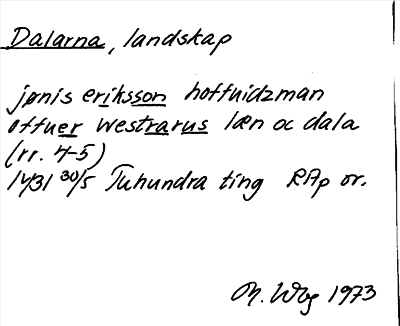 Dalarna, landskap
jønis eriksson hoffuidzman
offuer westrarus læn oc dala
(rr. 4-5)
1431 30/5 Tuhundra ting RAp or.
1973